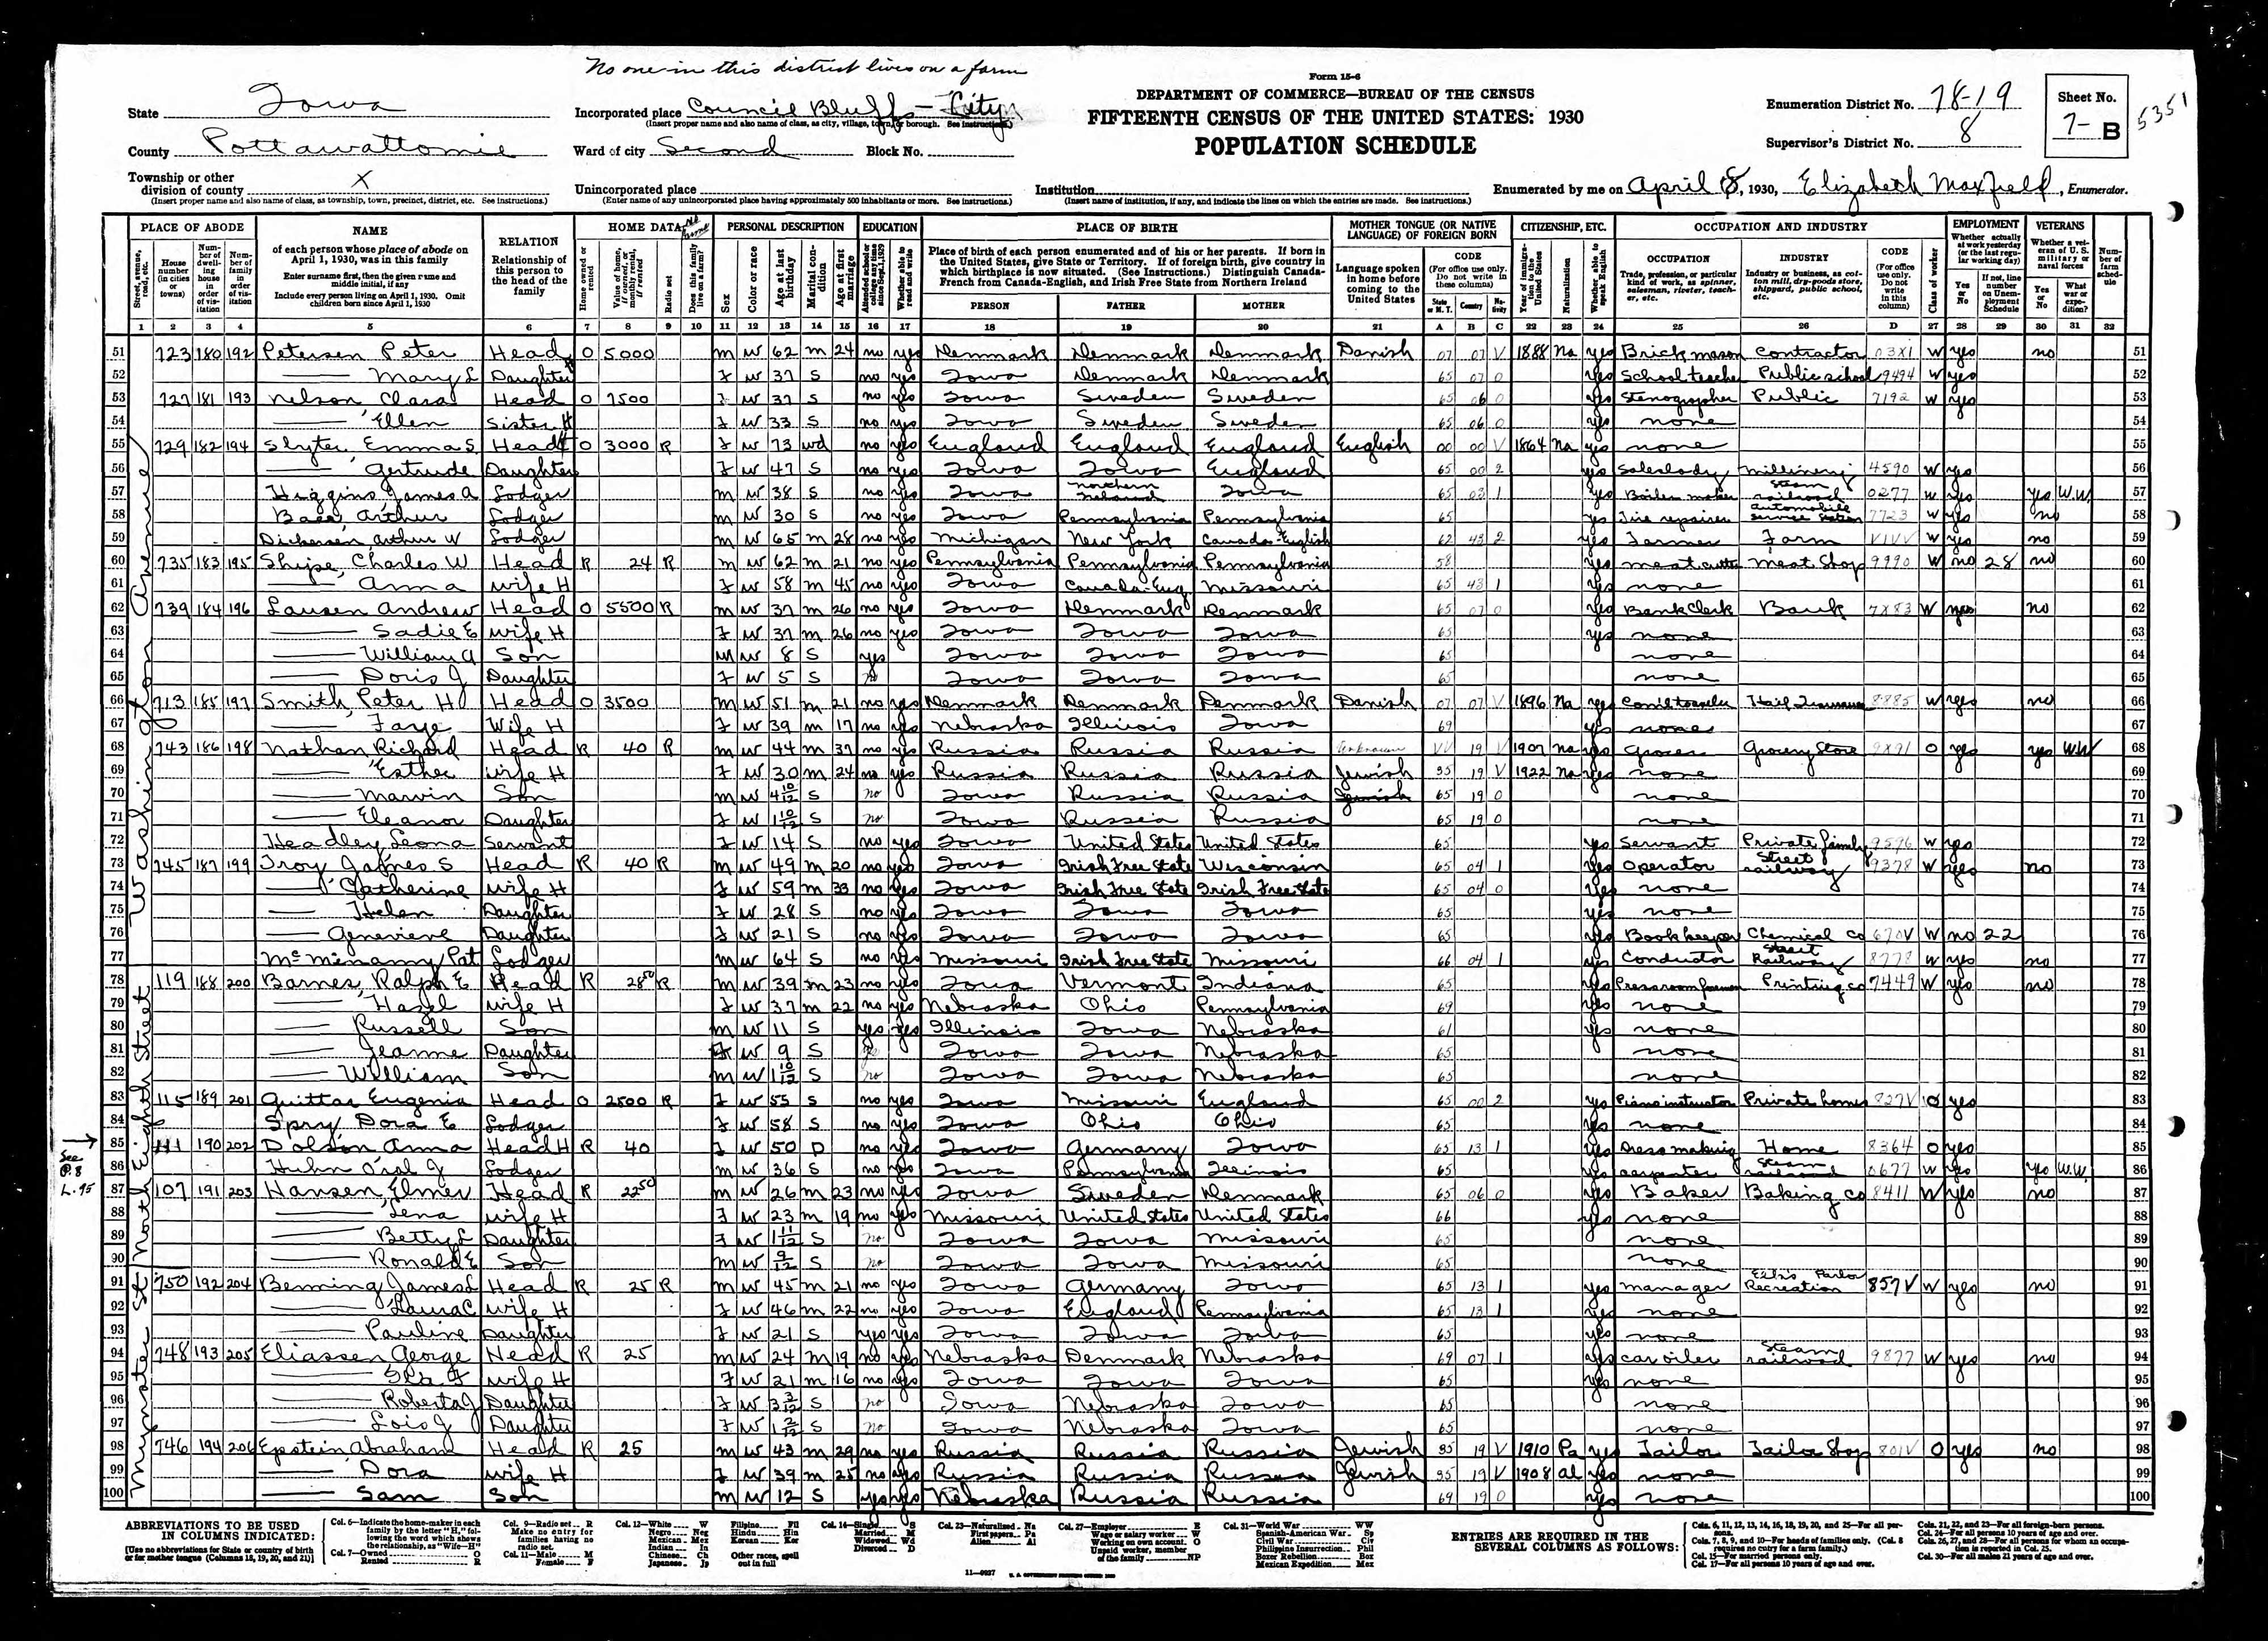 No one in this district lives on a farm
Form 15-6
DEPARTMENT OF COMMERCE—BUREAU OF THE CENSUS
FIFTEENTH CENSUS OF THE UNITED STATES: 1930
POPULATION SCHEDULE
State Iowa
County Pottawattomie
Township or other division of county X
(Insert proper name and also name of class, as township, town, precinct, district, etc. See instructions.)
Incorporated place Council Bluffs - City
(Insert proper name and also name of class, as city, village, town, or borough. See instructions.)
Ward of city Second Block No.
Unincorporated place
(Enter name of any unincorporated place having approximately 500 inhabitants or more. See instructions.)
Institution
(Insert name of institution, if any, and indicate the lines on which the entries are made. See instructions.)
Enumeration District No. 78-19
Supervisor's District No. 8
Sheet No. 7- B
5351
Enumerated by me on April 8, 1930, Elizabeth Maxfield, Enumerator.
PLACE OF ABODE NAME RELATION HOME DATA PERSONAL DESCRIPTION EDUCATION PLACE OF BIRTH MOTHER TONGUE (OR NATIVE LANGUAGE) OF FOREIGN BORN CITIZENSHIP, ETC. OCCUPATION AND INDUSTRY EMPLOYMENT VETERANS
PERSON FATHER MOTHER
1 2 3 4 5 6 7 8 9 10 11 12 13 14 15 16 17 18 19 20 21 A B C 22 23 24 25 26 D 27 28 29 30 31 32
Washington Avenue
51 723 180 192 Petersen Peter Head O 5000 M W 62 M 24 no yes Denmark Denmark Denmark Danish 07 07 V 1888 Na yes Brick mason Contractor 03X1 W yes no 51
52 Mary L Daughter F W 37 S no yes Iowa Denmark Denmark 65 07 0 yes School teacher Public school 9494 W yes 52
53 727 181 193 Nelson Clara Head O 7500 F W 37 S no yes Iowa Sweden Sweden 65 06 0 yes Stenographer Public 7192 W yes 53
54 Ellen Sister H F W 33 S no yes Iowa Sweden Sweden 65 06 0 yes none 54
55 729 182 194 Slyter, Emma S. Head H O 3000 R F W 73 wd no yes England England England English 00 00 V 1864 Na yes none 55
56 Gertrude Daughter F W 47 S no yes Iowa Iowa England 65 00 2 yes Saleslady millinery 4590 W yes 56
57 Higgins, James A Lodger M W 38 S no yes Iowa Northern Ireland Iowa 65 03 1 yes Boiler maker Steam railroad 0277 W yes yes W.W. 57
58 Arthur Lodger M W 30 S no yes Iowa Pennsylvania Pennsylvania 65 yes Tire repairer automobile service station 7723 W yes no 58
59 Dickersen, Arthur W Lodger M W 65 M 28 no yes Michigan New York Canada English 62 43 2 yes Farmer Farm VIVV W yes no 59
60 735 183 195 Shipe, Charles W Head R 24 R M W 62 M 21 no yes Pennsylvania Pennsylvania Pennsylvania 58 yes meat cutter meat Shop 9990 W no 28 no 60
61 Anna wife H F W 58 M 45 no yes Iowa Canada-Eng. Missouri 65 43 1 yes none 61
62 739 184 196 Lausen Andrew Head O 5500 R M W 37 M 26 no yes Iowa Denmark Denmark 65 07 0 yes Bank Clerk Bank 7X83 W yes no 62
63 Sadie E wife H F W 37 M 26 no yes Iowa Iowa Iowa 65 yes none 63
64 William A Son M W 8 S yes Iowa Iowa Iowa 65 none 64
65 Doris J Daughter F W 5 S no Iowa Iowa Iowa 65 none 65
66 713 185 197 Smith, Peter H Head O 3500 M W 51 M 21 no yes Denmark Denmark Denmark Danish 07 07 V 1896 Na yes Hail Insurance 8885 W yes no 66
67 Faye Wife H F W 39 M 17 no yes Nebraska Illinois Iowa 69 yes none 67
68 743 186 198 Nathan, Richard Head R 40 R M W 44 M 37 no yes Russia Russia Russia Unknown VV 19 V 1907 Na yes Grocer Grocery Store 9X91 O yes yes WW 68
69 Esther wife H F W 30 M 24 no yes Russia Russia Russia Jewish 95 19 V 1922 Na yes none 69
70 Marvin Son M W 4 10/12 S no Iowa Russia Russia Jewish 65 19 0 none 70
71 Eleanor Daughter F W 1 10/12 S no Iowa Russia Russia 65 19 0 none 71
72 Headley Leona Servant F W 14 S no yes Iowa United States United States 65 yes Servant Private family 9596 W yes 72
73 745 187 199 Troy, James S Head R 40 R M W 49 M 20 no yes Iowa Irish Free State Wisconsin 65 04 1 yes Operator Street railway 9378 W yes no 73
74 Catherine wife H F W 59 M 33 no yes Iowa Irish Free State Irish Free State 65 04 0 yes none 74
75 Helen Daughter F W 28 S no yes Iowa Iowa Iowa 65 yes none 75
76 Genevieve Daughter F W 21 S no yes Iowa Iowa Iowa 65 yes Bookkeeper Chemical Co 670V W no 22 76
77 McMenamy, Pat Lodger M W 64 S no yes Missouri Irish Free State Missouri 66 04 1 yes Conductor Street Railway 8778 W yes no 77
North Eighth Street
78 119 188 200 Barnes, Ralph E Head R 28 50 R M W 39 M 23 no yes Iowa Vermont Indiana 65 yes Pressroom foreman Printing co 7449 W yes no 78
79 Hazel wife H F W 37 M 22 no yes Nebraska Ohio Pennsylvania 69 yes none 79
80 Russell Son M W 11 S yes yes Illinois Iowa Nebraska 61 yes none 80
81 Jeanne Daughter F W 9 S Iowa Iowa Nebraska 65 none 81
82 William Son M W 1 10/12 S no Iowa Iowa Nebraska 65 none 82
83 115 189 201 Guittar Eugenia Head O 2500 R F W 55 S no yes Iowa Missouri England 65 00 2 yes Piano instructor Private homes 827V O yes 83
84 Spry, Dora E Lodger F W 58 S no yes Iowa Ohio Ohio 65 yes none 84
See P.8 L.95
85 111 190 202 Dolson Anna Head H R 40 F W 50 D no yes Iowa Germany Iowa 65 13 1 yes Dressmaking Home 8364 O yes 85
86 Huhn Oral J Lodger M W 36 S no yes Iowa Pennsylvania Illinois 65 yes carpenter Steam railroad 0677 W yes yes W.W. 86
87 107 191 203 Hansen, Elmer Head R 22 50 M W 26 M 23 no yes Iowa Sweden Denmark 65 06 0 yes Baker Baking co 8411 W yes no 87
88 Lena wife H F W 23 M 19 no yes Missouri United States United States 66 yes none 88
89 Betty L Daughter F W 1 11/12 S no Iowa Iowa Missouri 65 none 89
90 Ronald E Son M W 9/12 S no Iowa Iowa Missouri 65 none 90
Mynster St
91 750 192 204 Beming James L Head R 25 R M W 45 M 21 no yes Iowa Germany Iowa 65 13 1 yes manager Recreation Parlor 857V W yes no 91
92 Laura C wife H F W 46 M 22 no yes Iowa England Pennsylvania 65 13 1 yes none 92
93 Pauline Daughter F W 21 S yes yes Iowa Iowa Iowa 65 yes none 93
94 748 193 205 Eliassen, George Head R 25 M W 24 M 19 no yes Nebraska Denmark Nebraska 69 07 1 yes car oiler Steam railroad 9877 W yes no 94
95 wife H F W 21 M 16 no yes Iowa Iowa Iowa 65 yes none 95
96 Roberta J Daughter F W 3 3/12 S no Iowa Nebraska Iowa 65 none 96
97 Lois J Daughter F W 1 2/12 S no Iowa Nebraska Iowa 65 none 97
98 746 194 206 Epstein, Abraham Head R 25 M W 43 M 29 no yes Russia Russia Russia Jewish 95 19 V 1910 Pa yes Tailor Tailor Shop 801V O yes no 98
99 Dora wife H F W 39 M 25 no yes Russia Russia Russia Jewish 95 19 V 1908 Al yes none 99
100 Sam Son M W 12 S yes yes Nebraska Russia Russia 69 19 0 yes none 100
ABBREVIATIONS TO BE USED IN COLUMNS INDICATED:
[Use no abbreviations for State or country of birth or for mother tongue (Columns 18, 19, 20, and 21)]
ENTRIES ARE REQUIRED IN THE SEVERAL COLUMNS AS FOLLOWS: